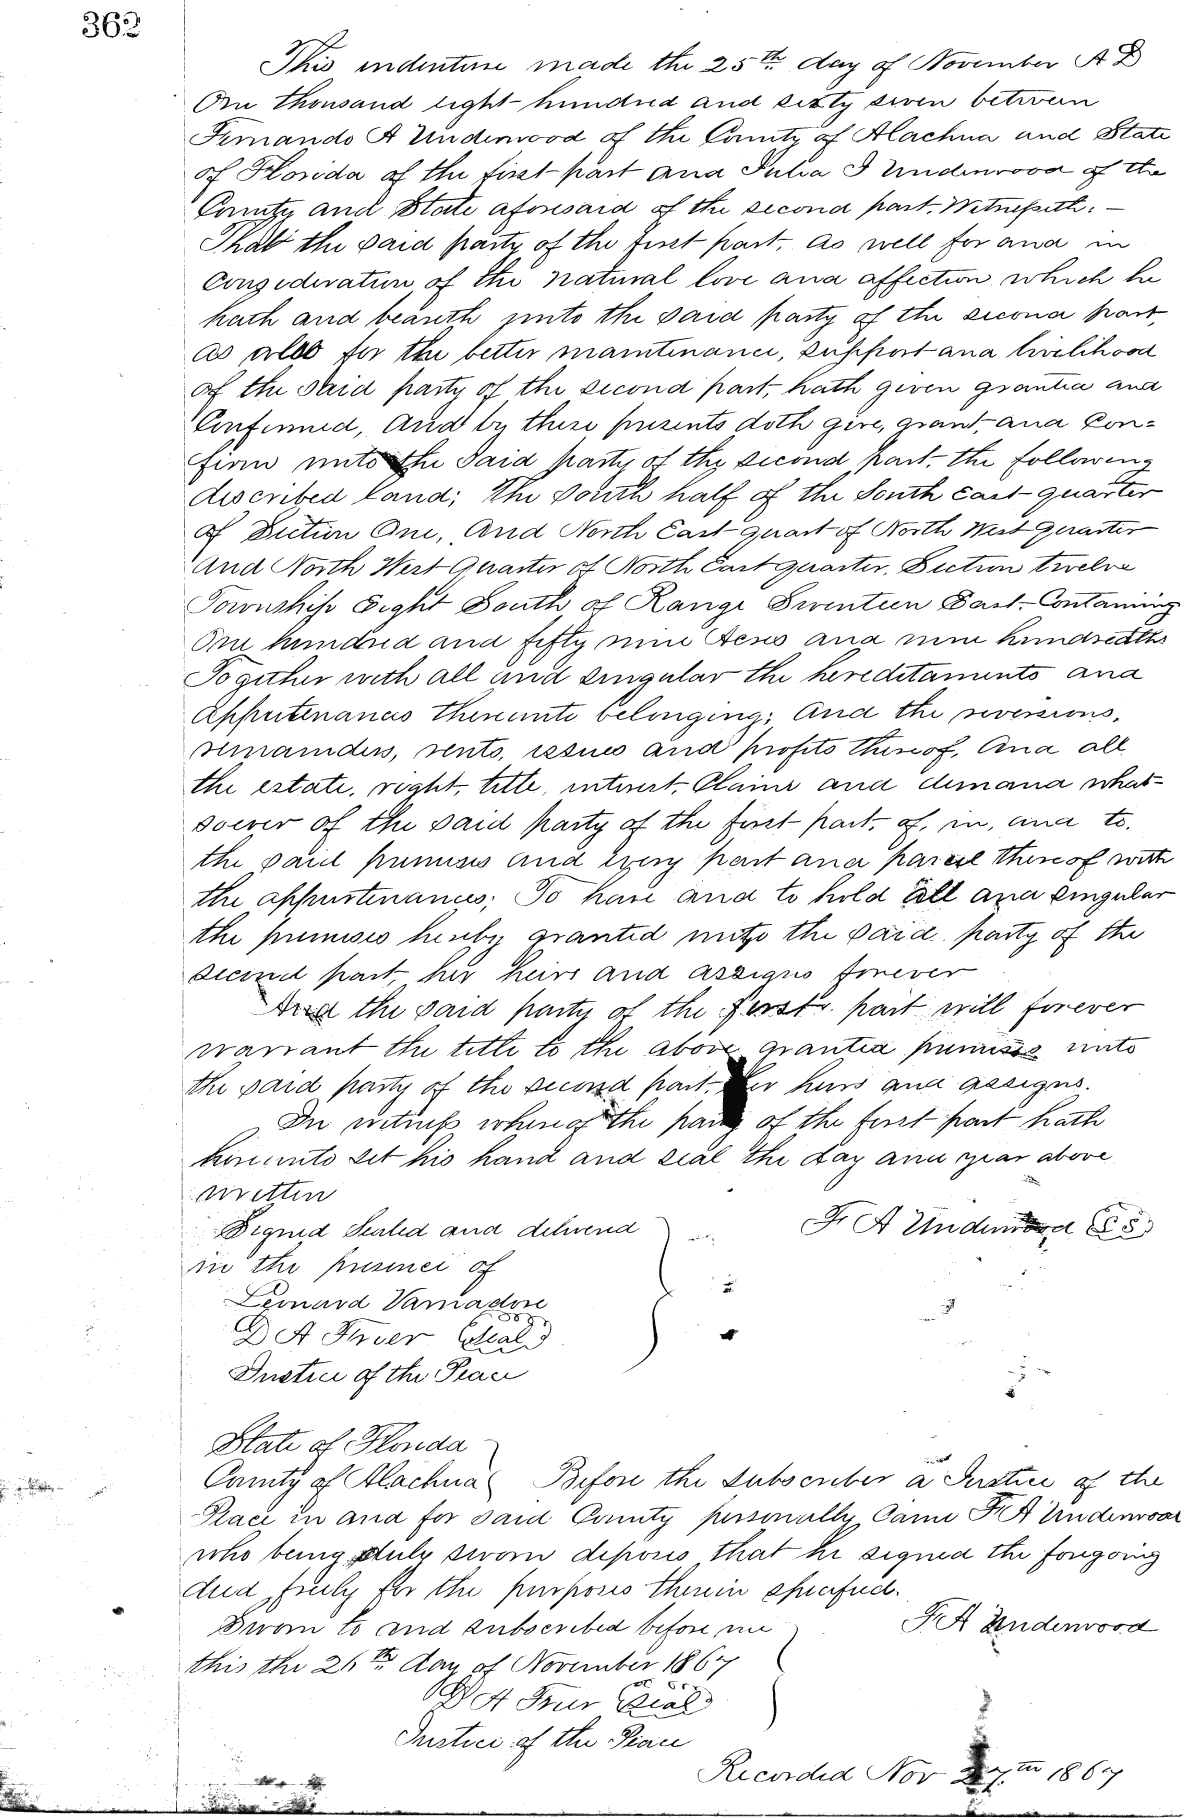 362
This indenture made the 25th day of November A D
One thousand eight hundred and sixty seven between
Fernando A Underwood of the County of Alachua and State
of Florida of the first part and Julia I Underwood of the
County and State aforesaid of the second part. Witnesseth: —
That the said party of the first part, as well for and in
Consideration of the natural love and affection which he
hath and beareth unto the said party of the second part,
as also for the better maintenance, support and livelihood
of the said party of the second part, hath given granted and
Confirmed, And by these presents doth give, grant, and Con=
firm unto the said party of the second part, the following
described land; The South half of the South East quarter
of Section One, And North East quart of North West quarter
And North West Quarter of North East quarter, Section twelve
Township Eight South of Range Seventeen East. Containing
One hundred and fifty nine Acres and nine hundredths
Together with all and singular the hereditaments and
Appurtenances thereunto belonging; And the reversions,
remainders, rents, issues and profits thereof, And all
the estate, right, title, interest, Claim and demand what=
soever of the said party of the first part, of, in, and to,
the said premises and every part and parcel thereof with
the appurtenances; To have and to hold all and singular
the premises hereby granted unto the said party of the
second part, her heirs and assigns forever
And the said party of the first part will forever
warrant the title to the above granted premises unto
the said party of the second part, her heirs and assigns.
In witness whereof the party of the first part hath
hereunto set his hand and seal the day and year above
written
Signed Sealed and delivered F A Underwood
in the presence of
Leonard Varnadore
D A Frier Seal
Justice of the Peace
State of Florida
County of Alachua Before the subscriber a Justice of the
Peace in and for said County personally Came F A Underwood
who being duly sworn deposes that he signed the foregoing
deed freely for the purposes therein specified.
Sworn to and subscribed before me F A Underwood
this the 26th day of November 1867
D A Frier Seal
Justice of the Peace
Recorded Nov 27th 1867